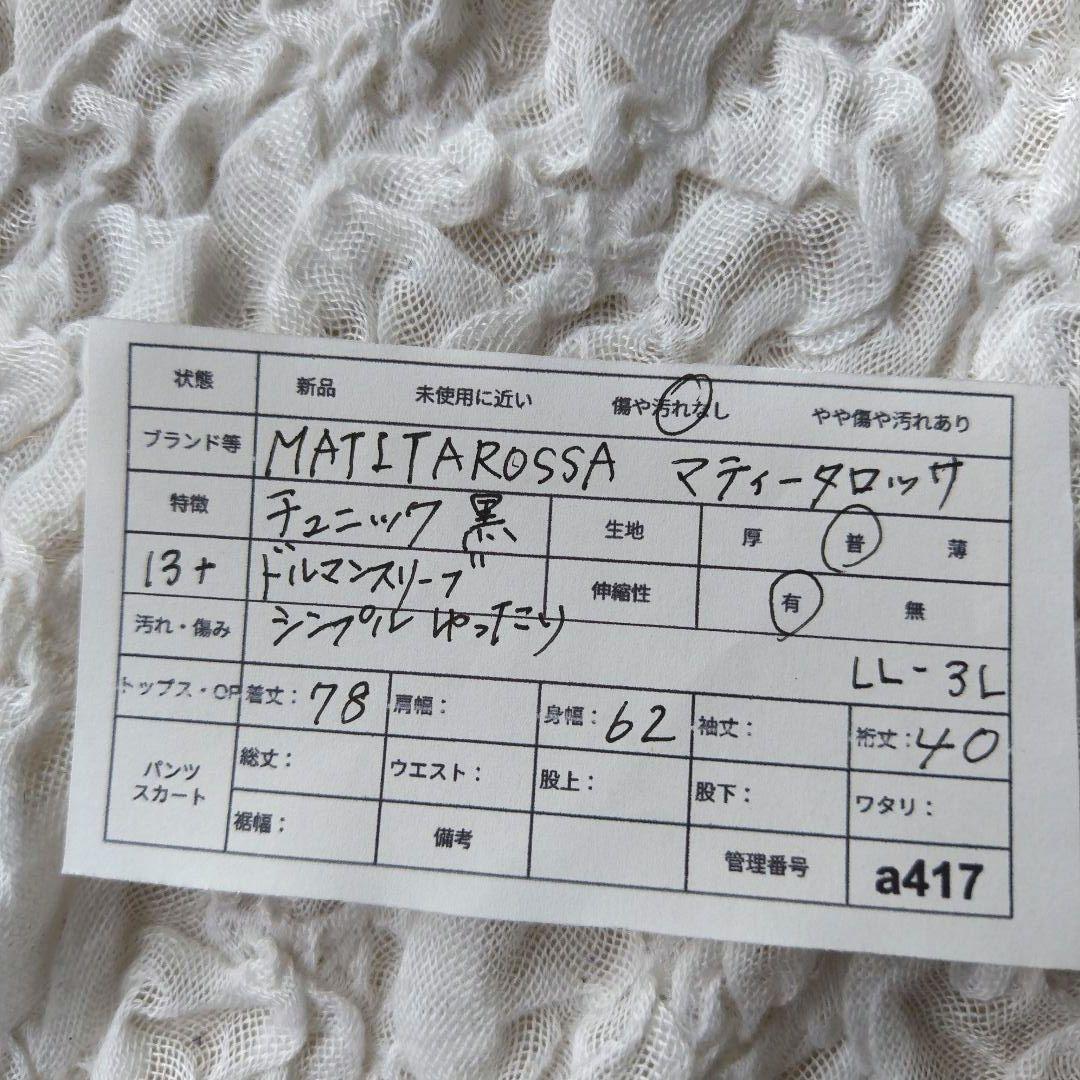 状態 新品 未使用に近い 傷や汚れなし やや傷や汚れあり
ブランド等 MATITAROSSA マティータロッサ
特徴 チュニック 黒 生地 厚 普 薄
13+ ドルマンスリーブ 伸縮性 有 無
汚れ・傷み シンプル ゆったり
LL-3L
トップス・OP 着丈：78 肩幅： 身幅：62 袖丈： 裄丈：40
パンツ スカート 総丈： ウエスト： 股上： 股下： ワタリ：
裾幅： 備考 管理番号 a417